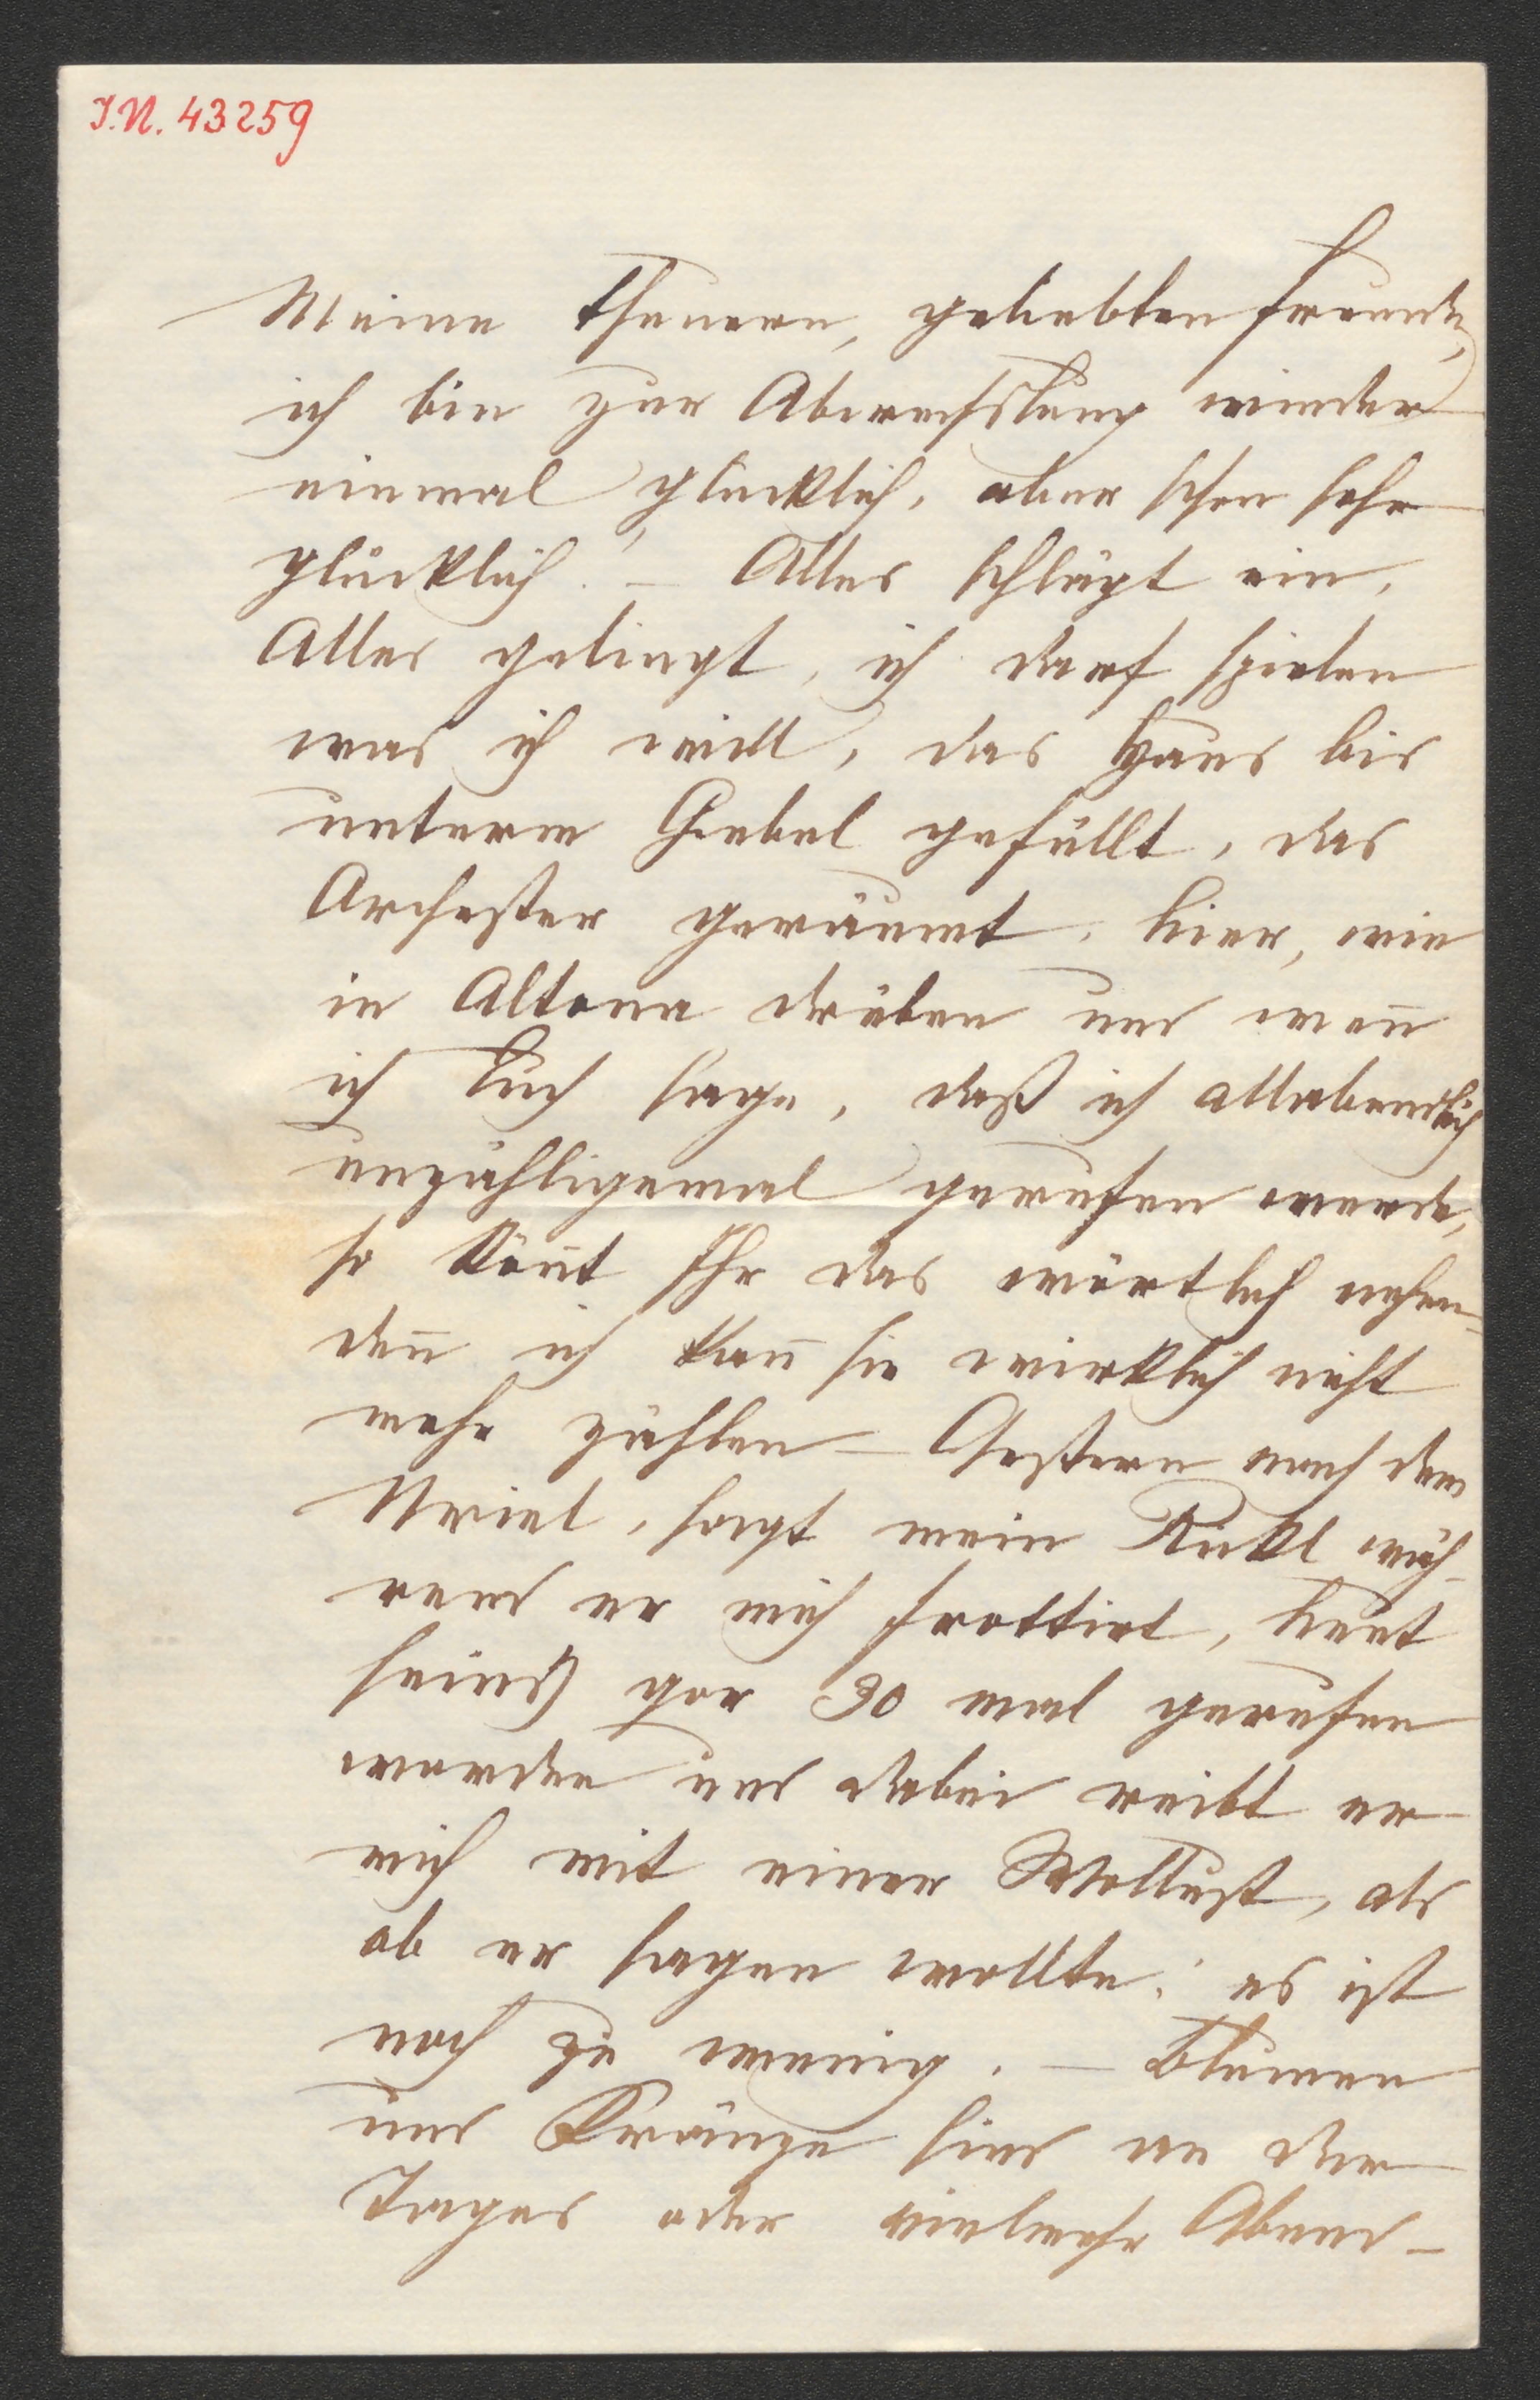 J.N. 43259
Meine theuern, geliebten Freunde,
ich bin zur Abwechslung wieder
einmal glücklich, aber schon sehr
glücklich. – Alles schlägt ein,
Alles gelingt, ich darf spielen
was ich will, das Haus bis
unterm Giebel gefüllt, das
Orchester geräumt, hier, wie
in Altona drüben und wen̅
ich Euch sage, daß ich allabendlich
unzähligemal gerufen werde,
so kön̅t Ihr das wörtlich nehmen
den̅ ich kan̅ sie wirklich nicht
mehr zählen – Gestern nach dem
Uriel, sagt mein Kukl wäh-
rend er mich frottirt, heut
seins gar 30 mal gerufen
worden und dabei reibt er
mich mit einer Wollust, als
ob er sagen wollte: es ist
noch zu wenig. – Blumen
und Kränze sind an der
Tages oder vielmehr Abend-